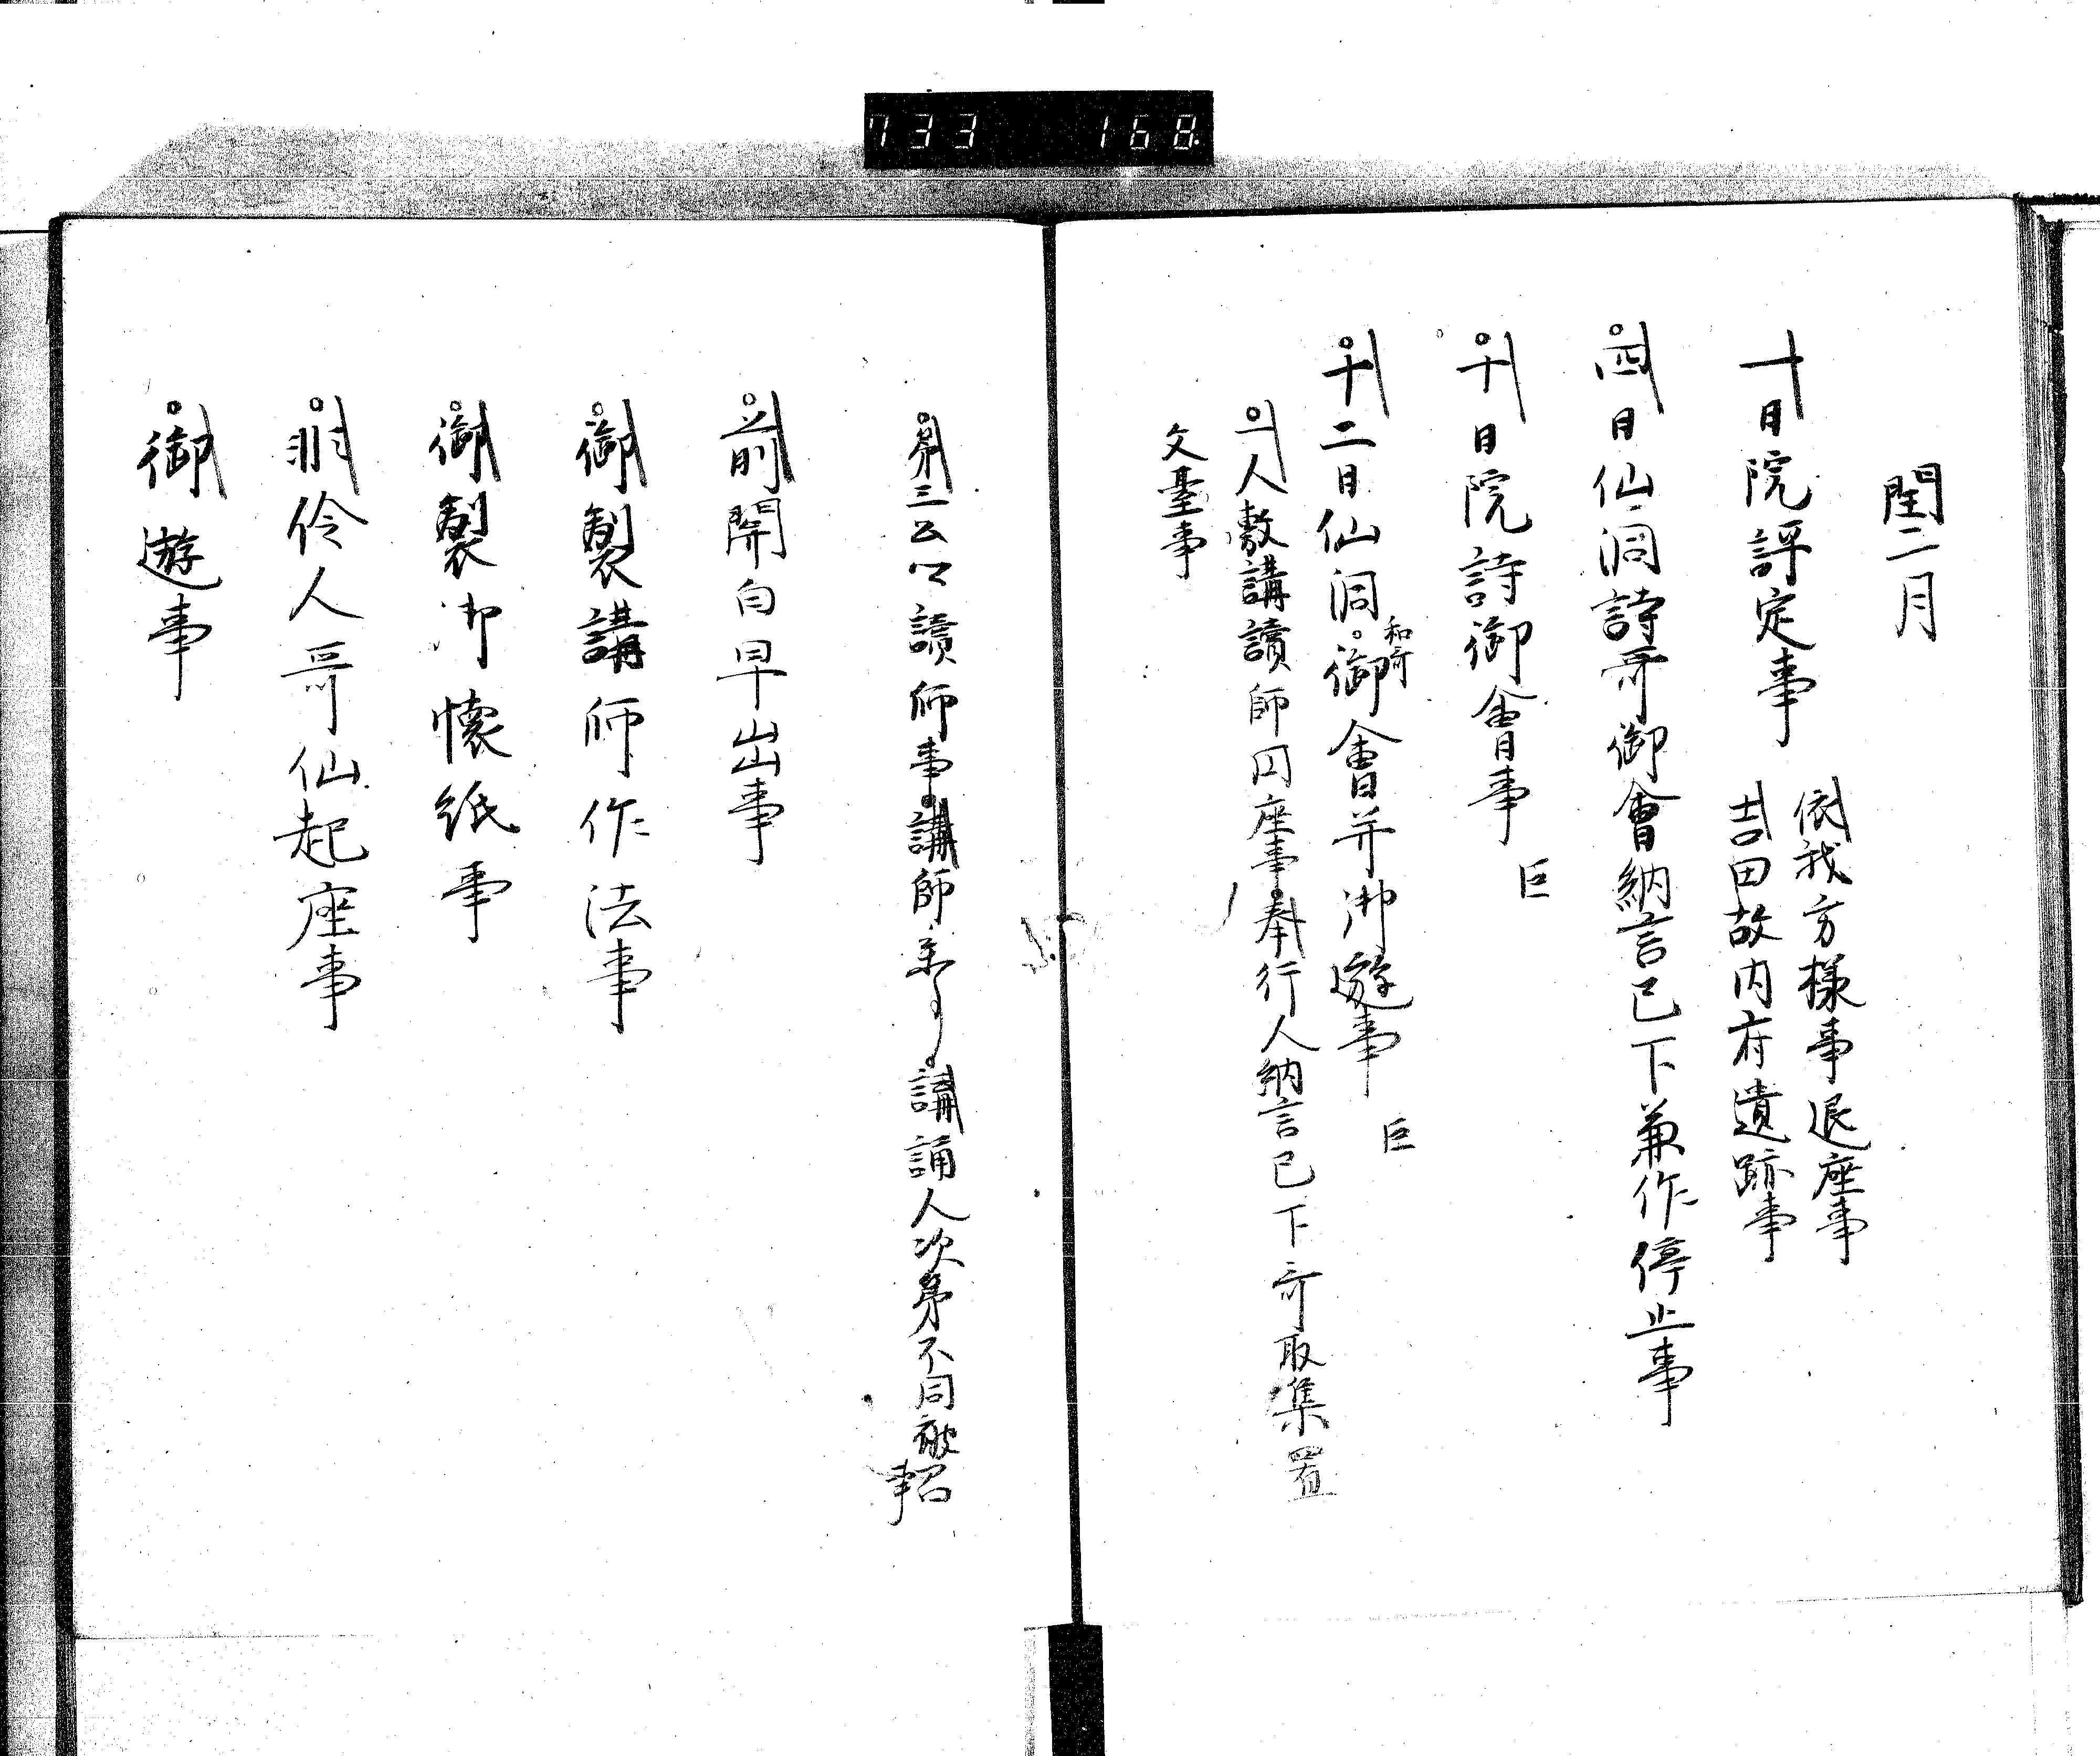 733 168
閏二月
十日院評定事
依我方様事退座事
吉田故内府遺跡事
四日仙洞詩哥御會納言已下兼作停止事
十日院詩御會事 巨
十二日仙洞和哥御會并御遊事 巨
一人敷講讀師円座事 奉行人納言已下哥取集置
文臺事
第三公以讀師事 講師 講誦人次第不同被召
事
前関白早出事
御製講師作法事
御製御懐紙事
非伶人哥仙起座事
御遊事